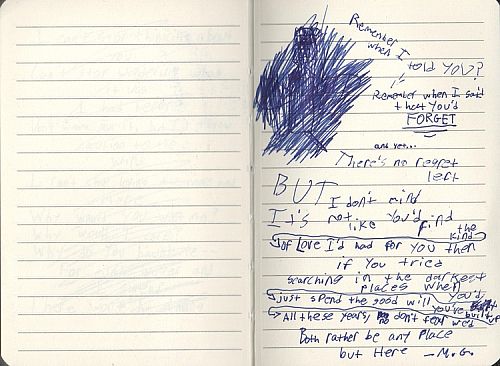 Remember
when I
told YOU?
Remember when I said
that You'd
FORGET
and yet...
There's no regret
left
BUT I don't mind
It's not like You'd find
the kind
of Love I'd had for YOU then
if You tried
searching in the darkest
places when
You'd
just spend the good will
You've built up
All these years, don't fear we'd
Both rather be any Place
but Here — M.G.